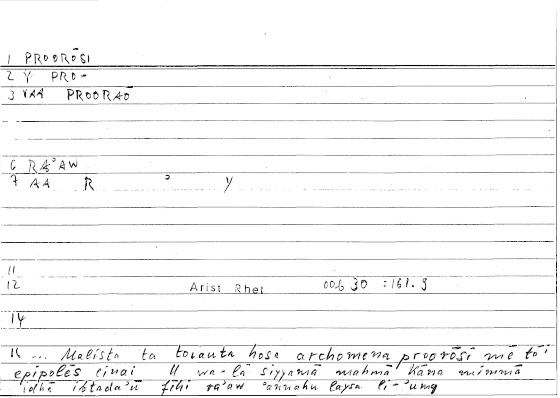 1 PROORŌSI
2 Y PRO-
3 VAA PROORAŌ
6 RAʾAW
7 AA R ʾ Y
11
12 Arist Rhet 00b 30 :161.9
14
15 ... Malista ta toiauta hosa archomena proorōsi mē tōi
epipolēs einai // wa-lā siyyamā mahmā kāna mimmā
idhā ibtadaʾū fīhi raʾaw ʾannahu laysa li-ʿumq